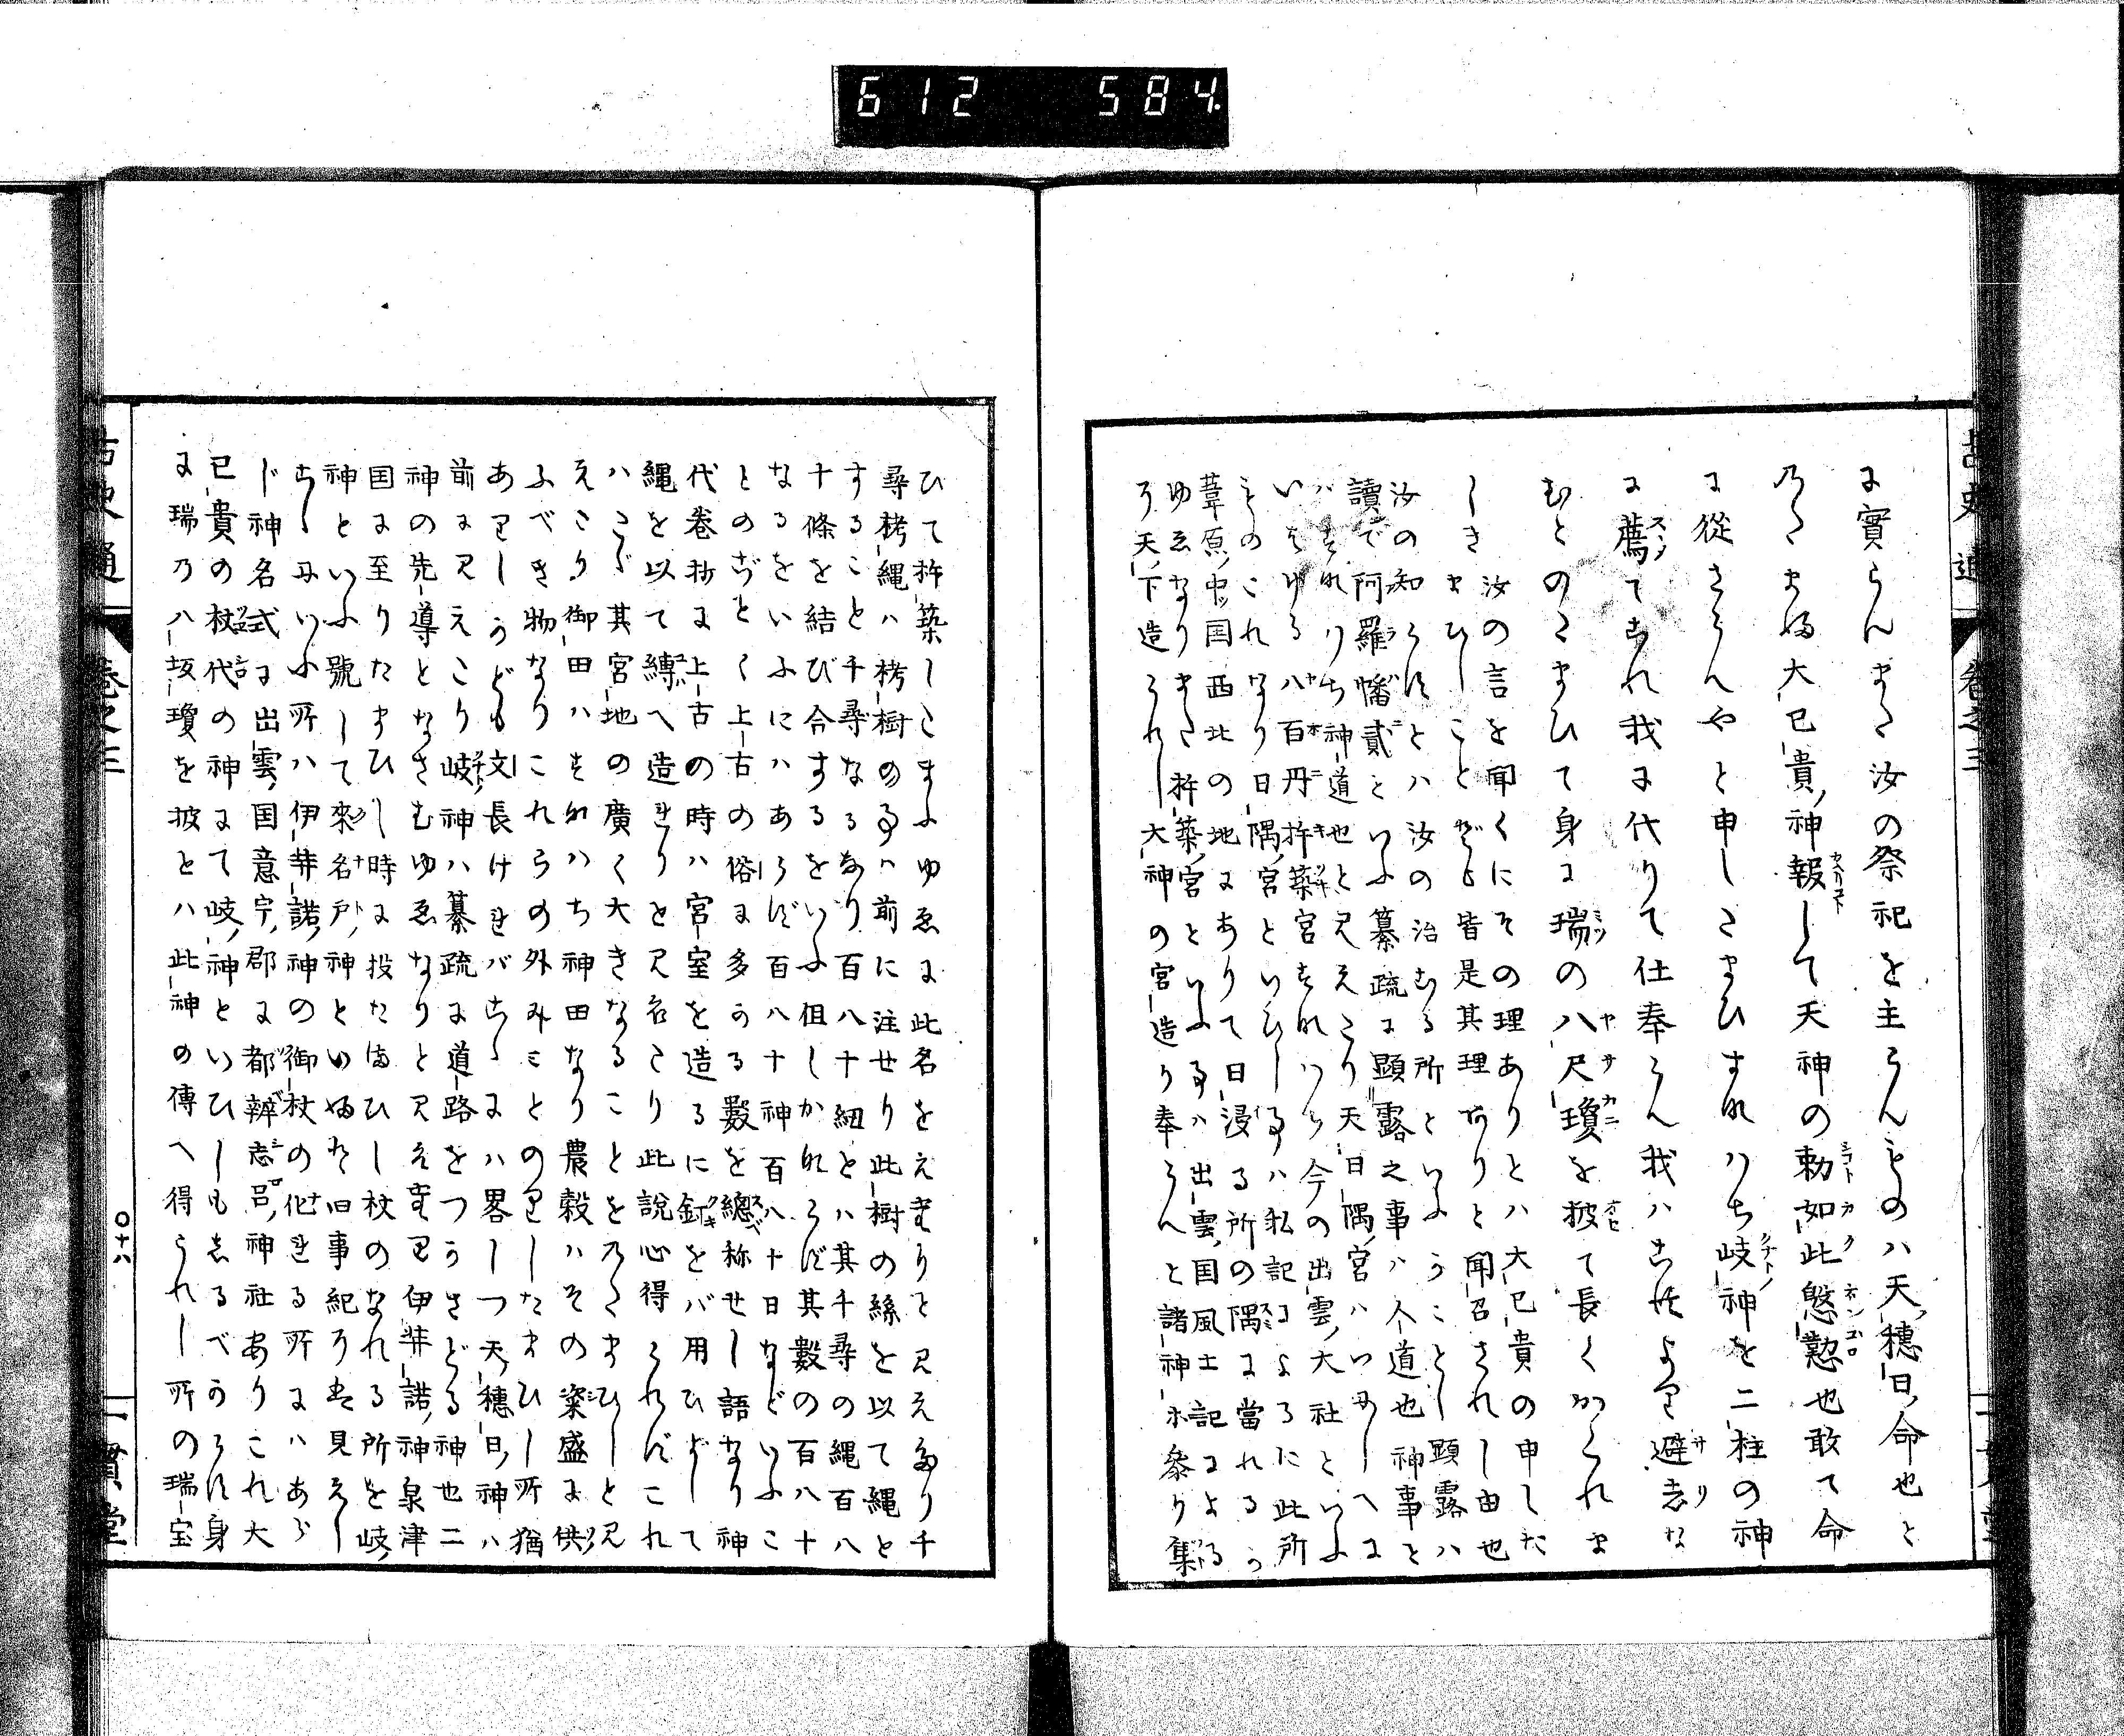 612 584
に實らんまた汝の祭祀を主らんものハ天穂日命也と
のたまふ大已貴神報して天神の勅如此慇懃也敢て命
に從さらんやと申したまひすなハち岐神を二柱の神
に薦てこれ我に代りて仕奉らん我ハこゝより避去な
むとのたまひて身に瑞の八尺瓊を披て長くかくれま
しき
汝の言を聞くにその理ありとハ大已貴の申した
まひしことども皆是其理ありと聞召されし由也
汝の知らすとハ汝の治むる所といふうことし顕露ハ
讀で阿羅幡貳といふ纂疏に顕露之事ハ人道也神事と
ハすなハち神道也と見えたり天日隅宮ハいにしへに
いはゆる八百丹杵築宮すなハち今の出雲大社といふ
ものこれなり日隅宮といひし事ハ私記によるに此所
葦原中国西北の地にありて日浸る所の隅に當れるか
ゆゑなりまた杵築宮といふ事ハ出雲国風土記による
に天下造られし大神の宮造り奉らんと諸神木参り集
ひて杵築したまふゆゑに此名をえまりと見えたり千
尋栲縄ハ栲樹の事ハ前に注せり此樹の絲を以て縄と
すること千尋なるあり百八十紐とハ其千尋の縄百八
十條を結び合するをいふ但しかれらず其數の百八十
なるをいふにハあらず百八十神百八十日などいふこ
とのごとく上古の俗に多かる數を總称せし語なり神
代巻抄に上古の時ハ宮室を造るに釘をバ用ひずして
縄を以て縛へ造れりと見えたり此説心得られずこれ
ハたゞ其宮地の廣く大きなることをのたまひしと見
えたり御田ハすなハち神田なり農穀ハその粢盛に供
ふべき物なりこれらの外みことのりしたまひし所猶
ありしかども文長ければこゝにハ畧しつ天穂日神ハ
前に見えたり岐神ハ纂疏に道路をつかさどる神也二
神の先導となさむゆゑなりと見えたり伊弉諾神泉津
国に至りたまひし時に投たまひし杖のなれる所を岐
神といふ號して來名戸神といふと旧事紀には見えし
こゝにいふ所ハ伊弉諾神の御杖の化れる所にハあら
じ神名式に出雲国意宇郡に都辨志呂神社ありこれ大
已貴の杖代の神にて岐神といひしもしるべからず身
に瑞乃八坂瓊を披とハ此神の傳へ得られし所の瑞宝
古史通 巻之三 〇十八 一貫堂